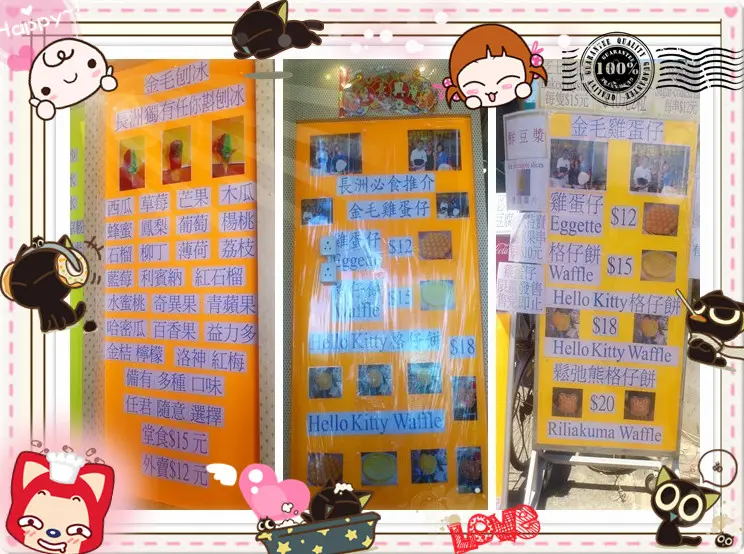 Happy
GUARANTEE QUALITY
100%
金毛刨冰
長洲獨有任你斟刨冰
西瓜 草莓 芒果 木瓜
蜂蜜 鳳梨 葡萄 楊桃
石榴 柳丁 薄荷 荔枝
藍莓 利賓納 紅石榴
水蜜桃 奇異果 青蘋果
哈密瓜 百香果 益力多
金桔 檸檬 洛神 紅梅
備有 多種 口味
任君 隨意 選擇
堂食$15 元
外賣$12 元
長洲必食推介
金毛雞蛋仔
雞蛋仔 $12
Eggette
格仔餅 $15
Waffle
Hello Kitty 格仔餅 $18
Hello Kitty Waffle
鮮豆漿
金毛雞蛋仔
雞蛋仔
Eggette $12
格仔餅
Waffle $15
Hello Kitty格仔餅
$18
Hello Kitty Waffle
鬆弛熊格仔餅
$20
Riliakuma Waffle
LOVE